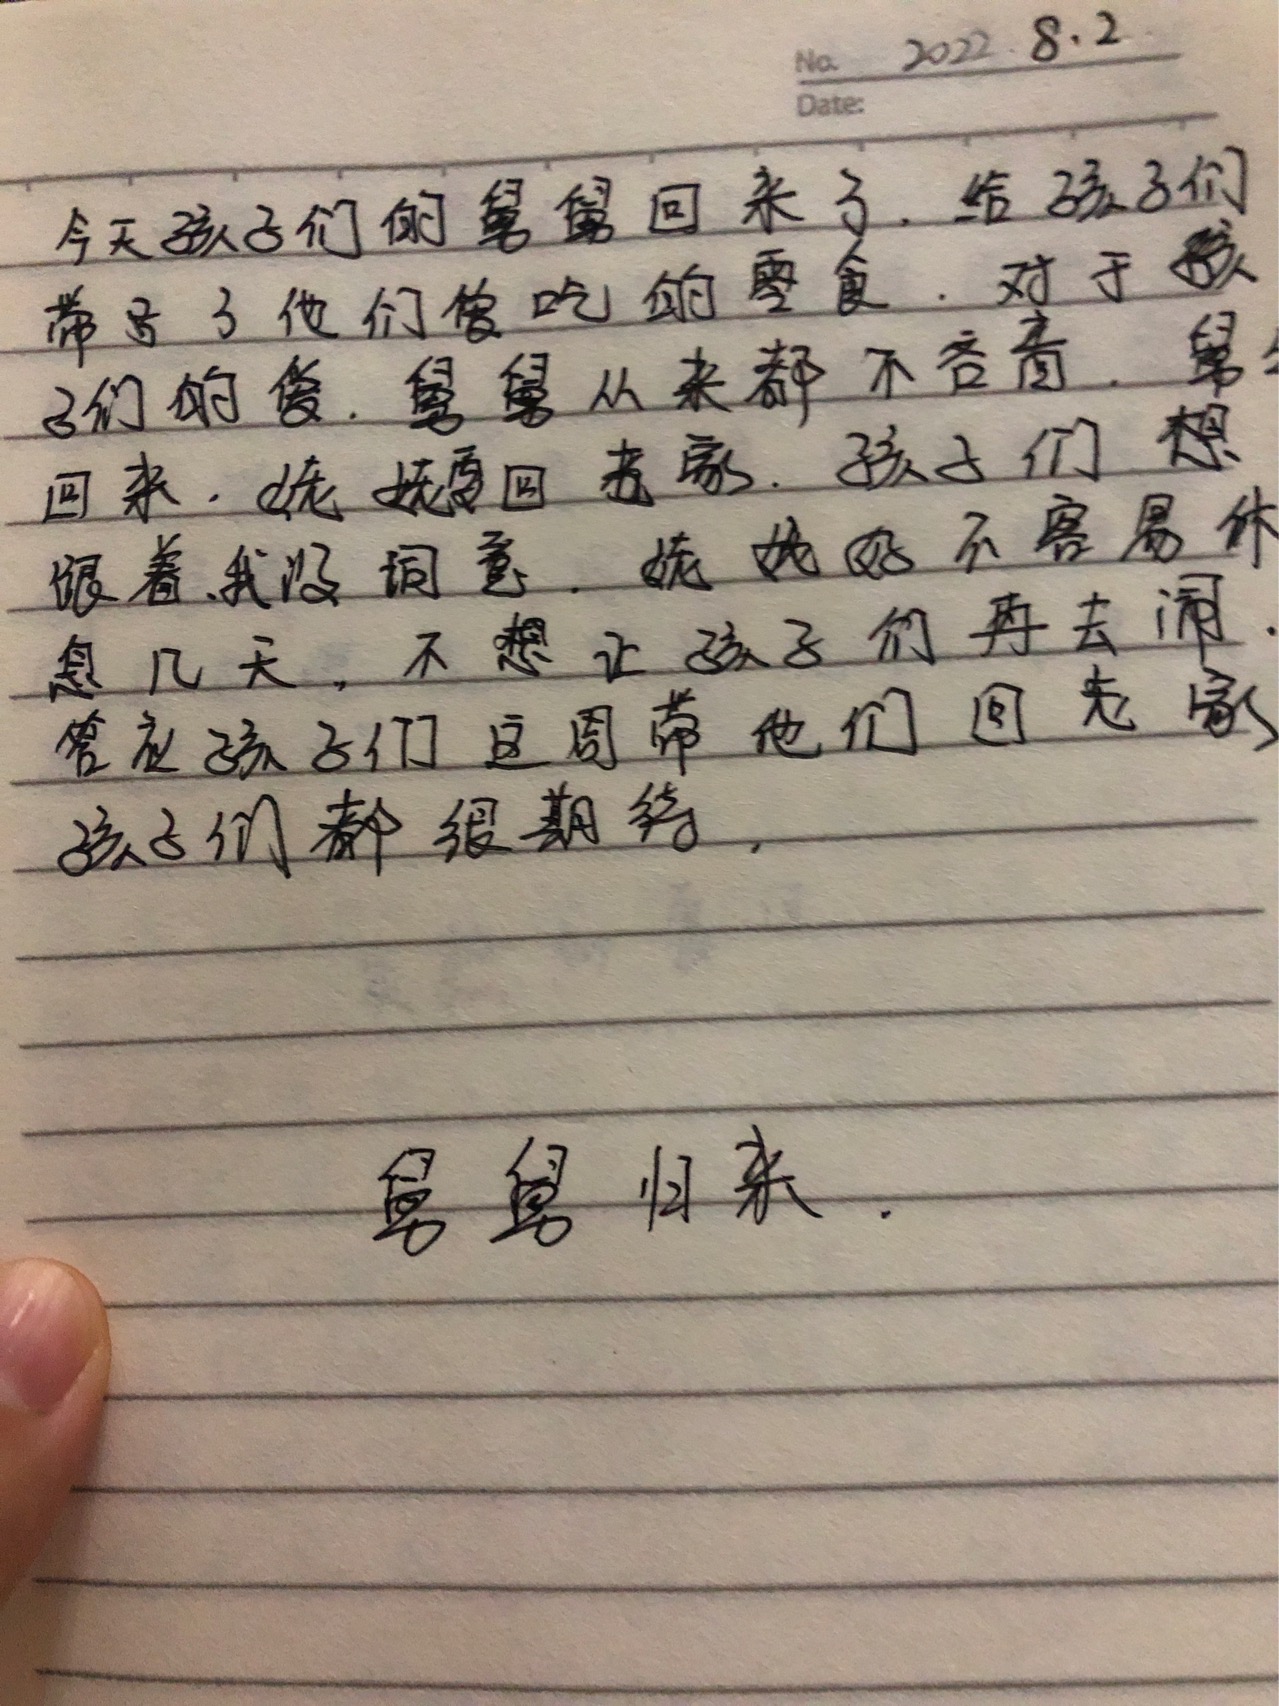 No. 2022.8.2
Date:
今天孩子们的舅舅回来了.给孩子们
带了他们爱吃的零食.对于孩
子们的爱.舅舅从来都不吝啬.舅
回来.姥姥要回老家.孩子们想
跟着.我没同意.姥姥好不容易休
息几天,不想让孩子们再去闹.
答应孩子们这周带他们回老家
孩子们都很期待.
舅舅归来.